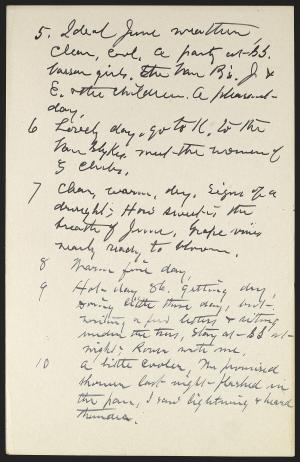 5. Ideal June weather,
clear, cool. A party at S.S.
Vassar girls. The Van B's. J. &
E. & the children. A pleasant
day.
6 Lovely day, go to K. to the
Van Slykes. meet the women of
G Clubs.
7 Clear, warm, dry. Signs of a
drought; How sweet is the
breath of June. Grape vines
nearly ready to bloom.
8 Warm fine day,
9 Hot day 86. getting dry
doing little these day, but
writing a few letters & sitting
under the trees, Stay at S.S. at
night; Rover with me.
10 A little cooler, The promised
shower last night flashed in
the pan, I saw lightning & heard
thunder.